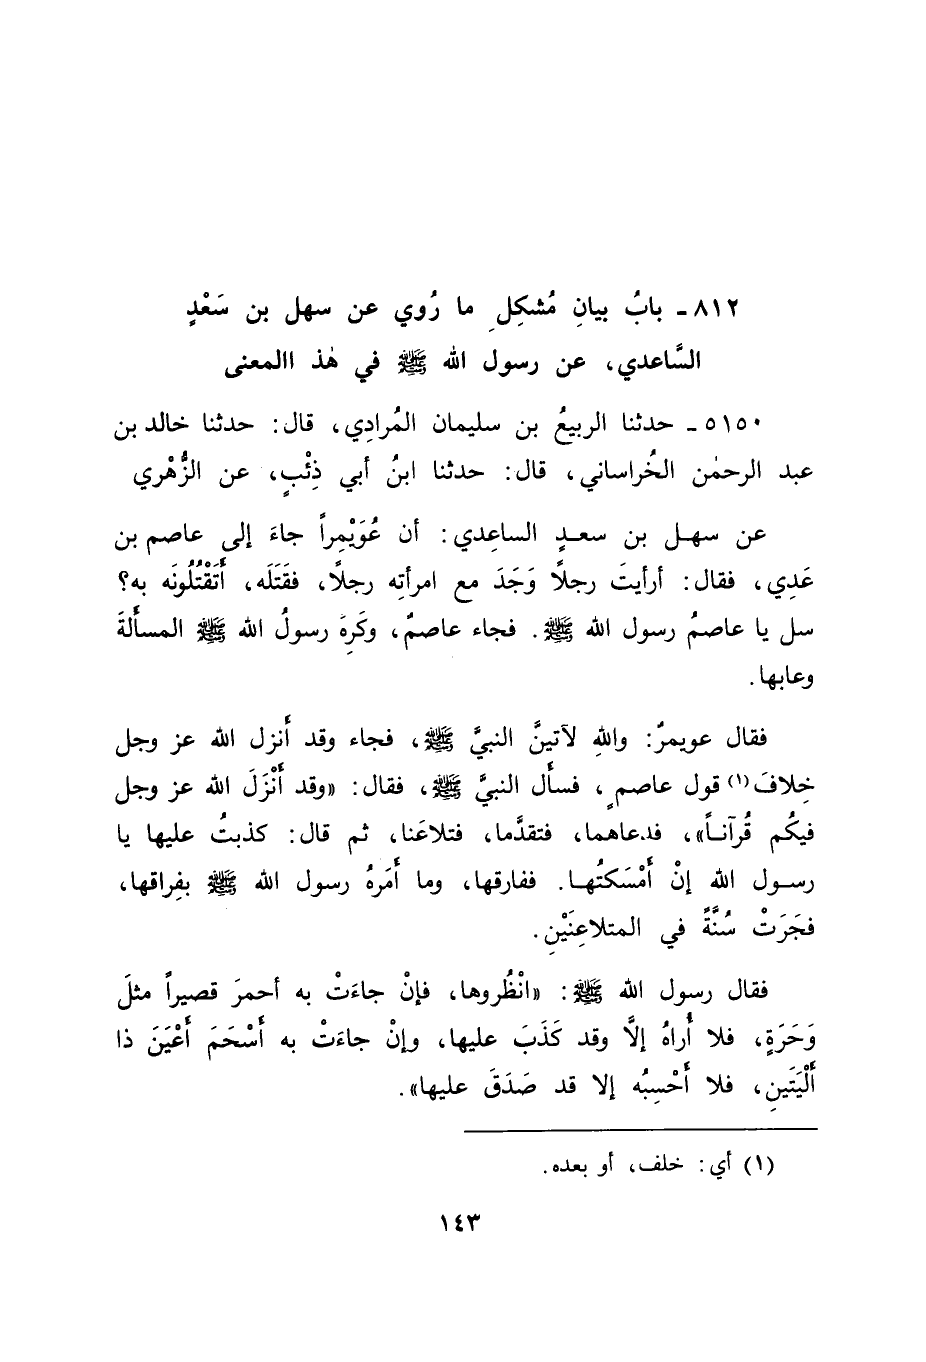 ٨١٢ ـ بابُ بيانِ مُشكِلِ ما رُوي عن سهل بن سَعْدٍ
السَّاعدي، عن رسول الله ﷺ في هٰذ االمعنى
٥١٥٠ ـ حدثنا الربيعُ بن سليمان المُرادِي، قال: حدثنا خالد بن
عبد الرحمٰن الخُراساني، قال: حدثنا ابنُ أبي ذِئْبٍ، عن الزُّهْري
عن سهل بن سعدٍ الساعِدي: أن عُوَيْمِراً جاءَ إلى عاصم بن
عَدِي، فقال: أرأيتَ رجلاً وَجَدَ مع امرأتِه رجلًا، فقَتَلَه، أَتَقْتُلُونَه به؟
سل يا عاصمُ رسول الله ﷺ. فجاء عاصمٌ، وكَرِهَ رسولُ الله ﷺ المسألةَ
وعابها.
فقال عويمرٌ: واللهِ لآتينَّ النبيَّ ﷺ، فجاء وقد أَنزل الله عز وجل
خِلافَ(١) قول عاصمٍ، فسأَل النبيَّ ﷺ، فقال: «وقد أَنْزَلَ الله عز وجل
فيكُم قُرآناً»، فدعاهما، فتقدَّما، فتلاعَنا، ثم قال: كذبتُ عليها يا
رسول الله إنْ أَمْسَكتُها. ففارقها، وما أَمَرهُ رسول الله ﷺ بفِراقها،
فجَرَتْ سُنَّةً في المتلاعِنَيْنِ.
فقال رسول الله ﷺ: «انْظُروها، فإنْ جاءَتْ به أحمرَ قصيراً مثلَ
وَحَرَةٍ، فلا أُراهُ إلَّا وقد كَذَبَ عليها، وإنْ جاءَتْ به أَسْحَمَ أَعْيَنَ ذا
أَلْيَتَينِ، فلا أَحْسِبُه إلا قد صَدَقَ عليها».
(١) أي: خلف، أو بعده.
١٤٣